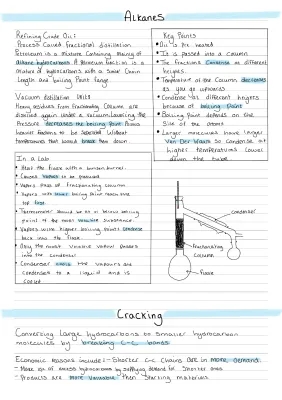 Alkanes
Refining Crude Oil:
Process called fractional distillation
Petroleum is a mixture containing mainly of
alkane hydrocarbons. A Petroleum fraction is a
mixture of hydrocarbons with a similar Chain
Length and boiling Point range
Vacuum distillation
Heavy residues from fractionating column are
distilled again under a vacuum. Lowering the
Pressure decreases the boiling Point. Allows
heavier fractions to be separated without
temperatures that would break them down
Key Points
• Oil is Pre heated
• It is passed into a column
• The fractions condense at different
heights.
• Temperature of the column decreases
as you go upwards
• Condense at different heights
because of boiling Point
• Boiling Point depends on the
Size of the atoms
• Larger molecules have larger
Van Der Waals so condense at
higher temperatures lower
down the tube
In a Lab
• Heat the flask with a bunsen burner.
• Causes vapours to be produced
• Vapours pass up fractionating column
• Vapours with lower boiling Point reach
the top first
• Thermometer should be at or below boiling
point of the most volatile substance.
• Vapours with higher boiling points condense
back into the flask
• Only the most volatile vapour passes
into the condenser
• Condenser cools the vapours and
condenses to a liquid and is
collected
condenser
fractionating
column
flask
Cracking
Converting Large hydrocarbons to smaller hydrocarbon
molecules by breaking C-C bonds
Economic reasons include:- Shorter C-C chains are in more demand.
- Make use of excess hydrocarbons by supplying demand for shorter ones
- Products are more valuable than starting materials